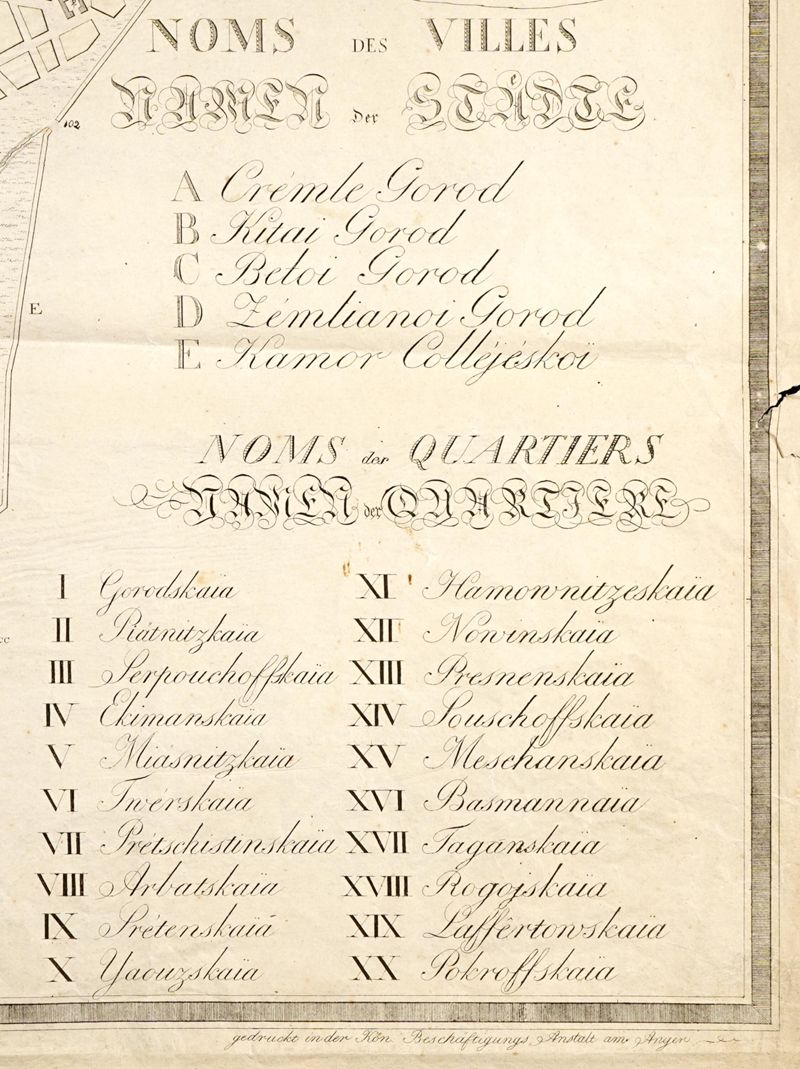 NOMS DES VILLES
NAMEN der STÄDTE
102
A Crémle Gorod
B Kitai Gorod
C Beloi Gorod
D Zémlianoi Gorod
E
E Kamor Colléjéskoï
NOMS des QUARTIERS
NAMEN der QUARTIERE
I Gorodskaïa
II Piátnitzkaïa
III Serpouchoffskaïa
IV Ekimanskaïa
V Miásnitzkaïa
VI Twérskaïa
VII Prétschistinskaïa
VIII Arbatskaïa
IX Srétenskaïa
X Yaouzskaïa
XI Hamownitzeskaïa
XII Nowinskaïa
XIII Presnenskaïa
XIV Souschoffskaïa
XV Meschanskaïa
XVI Basmannaïa
XVII Taganskaïa
XVIII Rogojskaïa
XIX Laffêrtowskaïa
XX Pokroffskaïa
gedruckt in der Kön Beschäftigungs Anstalt am Anger